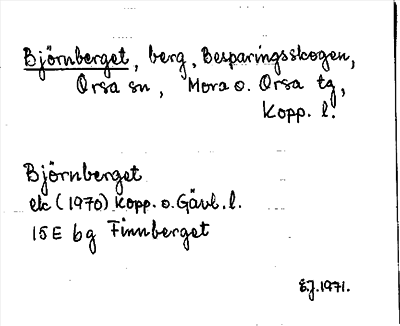 Björnberget, berg, Besparingsskogen,
Orsa sn, Mora o. Orsa tg,
Kopp. l.
Björnberget
ek (1970) Kopp. o. Gävl. l.
15E bg Finnberget
E.J. 1971.